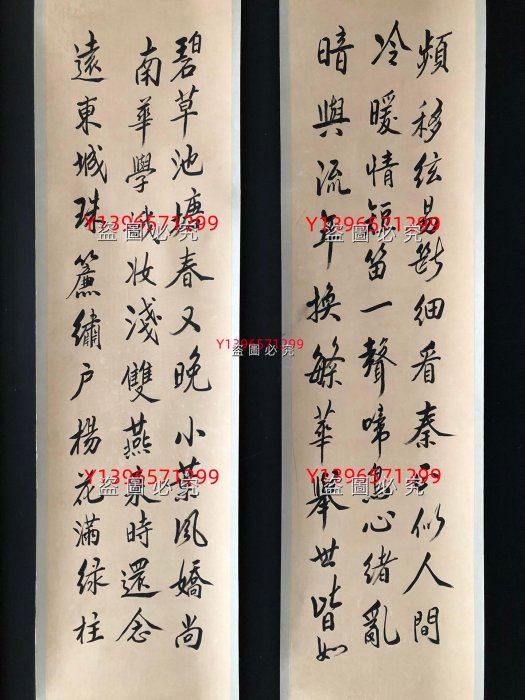 碧草池塘春又晚小葉風嬌尚
南華學妆淺雙燕來時還念
遠東城珠簾繡户楊花滿绿柱
頻移絃易斷細看秦似人間
冷暖情短笛一聲啼鳥心緒亂
暗與流年換繁華舉世皆如
Y1396571299
盜圖必究
Y1396571299
盜圖必究
Y1396571299
盜圖必究
Y1396571299
盜圖必究
Y1396571299
盜圖必究